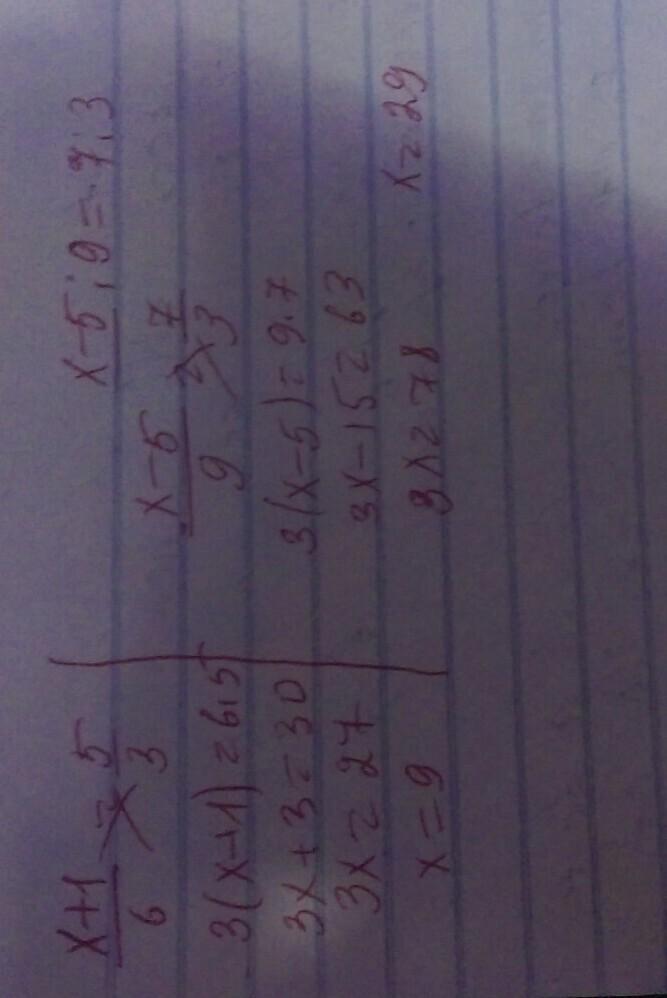 x+1/6 = 5/3
3(x+1)=6.5
3x+3=30
3x=27
x=9
x-5:9=7:3
x-5/9 = 7/3
3(x-5)=9.7
3x-15=63
3x=78
x=29